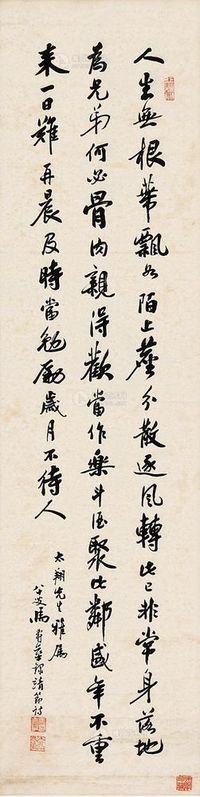 人生無根華飄如陌上塵分散逐風轉此已非常身落地
為兄弟何必骨肉親得歡當作樂斗酒聚比鄰盛年不重
來一日難再晨及時當勉勵歲月不待人
太翔先生雅屬
靖節詩